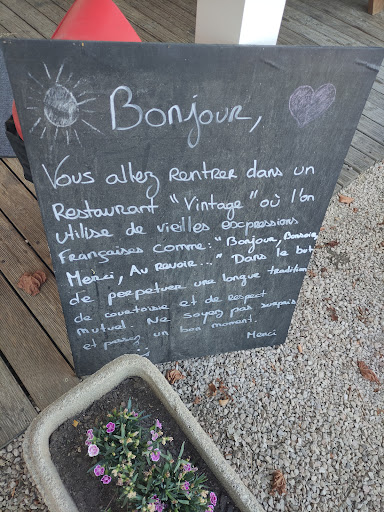 Bonjour,
Vous allez rentrer dans un
Restaurant "Vintage" où l'on
utilise de vieilles excpressions
Françaises comme: "Bonjour, Bonsoir,
Merci, Au revoir..." Dans le but
de perpetuer une longue tradition
de courtoisie et de respect
mutuel. Ne soyez pas surpris
et passez un bon moment.
Merci